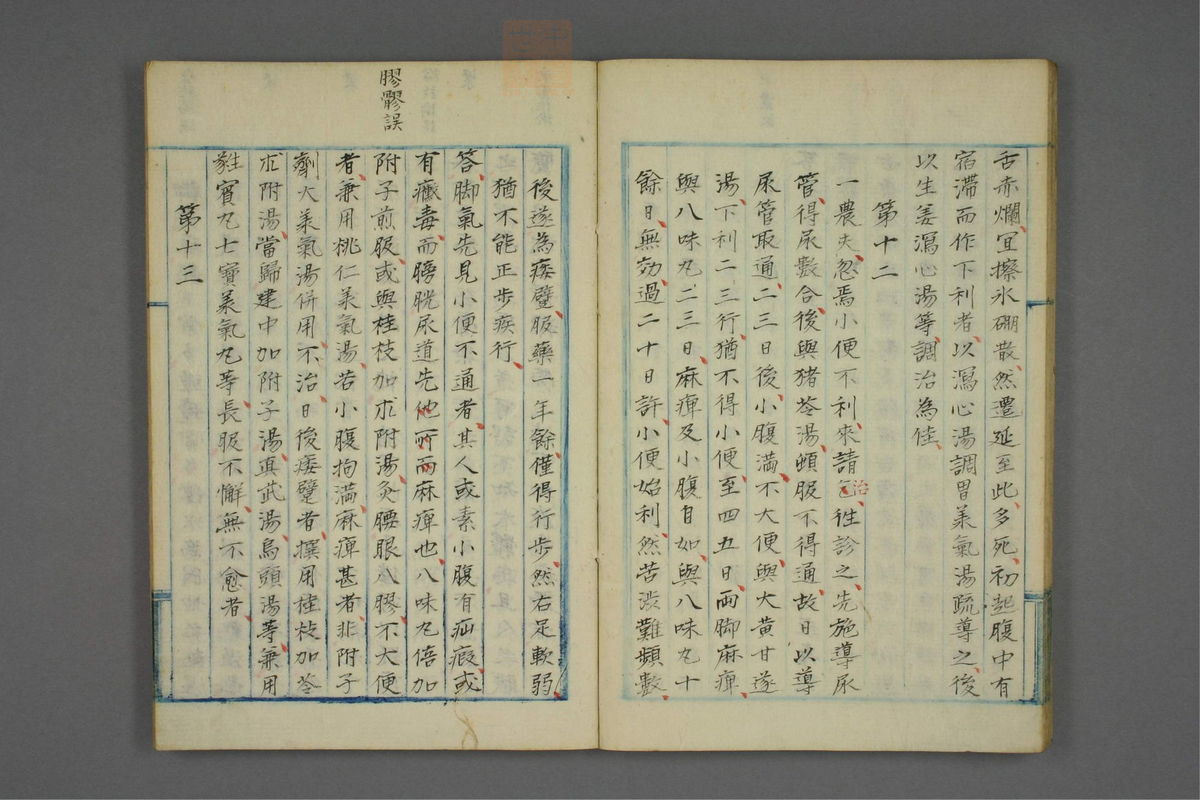 舌赤爛、宜擦氷硼散、然遷延至此、多死、初起腹中有
宿滞而作下利者、以瀉心湯調胃菓氣湯疏導之、後
以生姜瀉心湯等、調治為佳、
第十二
一農夫、忽焉小便不利、來請乞治、徃診之、先施導尿
管、得尿數合、後與猪苓湯、頓服不得通、故日以導
尿管取通、二三日後、小腹満、不大便、與大黄甘遂
湯、下利二三行、猶不得小便、至四五日、両脚麻痺、
與八味丸、二三日、麻痺及小腹自如、與八味丸十
餘日、無効、過二十日許、小便始利、然苦渋難頻數、
後遂為痿躄、服藥一年餘、僅得行歩、然右足軟弱、
猶不能正歩疾行、
答、脚氣先見小便不通者、其人或素小腹有疝瘕、或
有癥毒、而膀胱尿道先他所而麻痺也、八味丸倍加
附子煎服、或與桂枝加朮附湯、灸腰眼八膠、不大便
者、兼用桃仁菓氣湯、苦小腹拘満麻痺甚者、非附子
劑大菓氣湯併用、不治、日後痿躄者、撰用桂枝加苓
朮附湯、當歸建中加附子湯、真武湯、烏頭湯等、兼用
賓丸七寶菓氣丸等、長服不懈、無不愈者、
第十三
膠髎誤